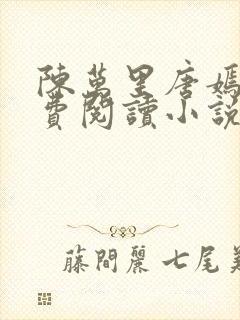 陳萬里唐嫣
費閱讀小說
藤間麗 七尾美